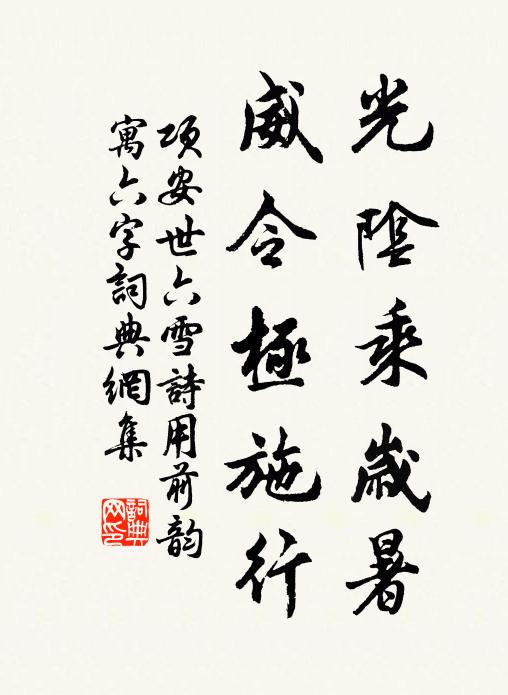 光陰乘歲暑
威令極施行
項安世六雪詩用前韵
寓六字詞典網集
詞典网印